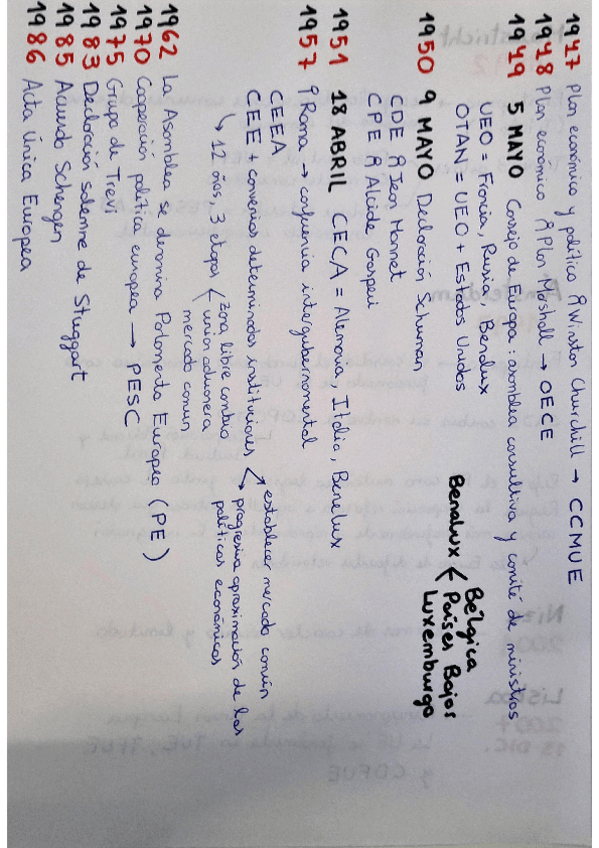 1947 Plan económico y político Winston Churchill → CCMUE
1948 Plan económico Plan Marshall → OECE
1949 5 MAYO Consejo de Europa: asamblea consultiva y comité de ministros
UEO = Francia, Rusia, Benelux
OTAN = UEO + Estados Unidos
1950 9 MAYO Declaración Schuman
CDE Jean Monnet
CPE Alcide Gasperi
Benelux < Bélgica
Países Bajos
Luxemburgo
1951 18 ABRIL CECA = Alemania, Italia, Benelux
1957 Roma → conferencia intergubernamental
CEEA
CEE + convenio determinadas instituciones
establecer mercado común
progresiva aproximación de las políticas económicas
↳ 12 años, 3 etapas
zona libre cambio
unión aduanera
mercado común
1962 La Asamblea se denomina Parlamento Europeo (PE)
1970 Cooperación política europea → PESC
1975 Grupo de Trevi
1983 Declaración solemne de Stuggart
1985 Acuerdo Schengen
1986 Acta Única Europea